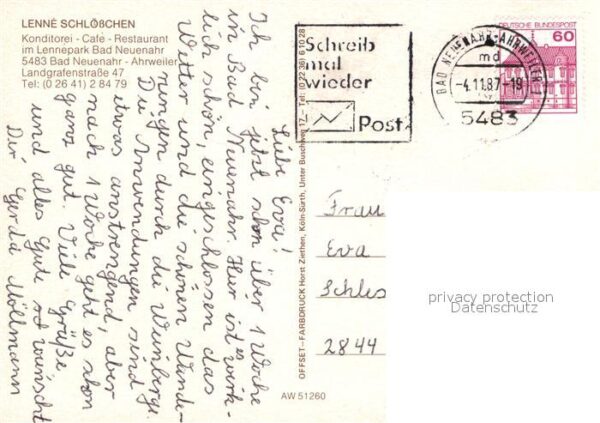 LENNÉ SCHLÖßCHEN
Konditorei - Café - Restaurant
im Lennepark Bad Neuenahr
5483 Bad Neuenahr - Ahrweiler
Landgrafenstraße 47
Tel: (0 26 41) 2 84 79
Liebe Eva!
Ich bin jetzt schon über 1 Woche
in Bad Neuenahr. Hier ist es wirk-
lich schön, eingeschlossen das
Wetter und die schönen Wande-
rungen durch die Weinberge.
Die Anwendungen sind
etwas anstrengend, aber
nach 1 Woche geht es schon
ganz gut. Viele Grüße
und alles Gute wünscht
Dir Gerda Möllmann
OFFSET-FARBDRUCK Horst Ziethen, Köln-Sürth, Unter Buschweg 17, Tel: (0 22 36) 6 10 28
AW 51260
Schreib
mal
wieder
Post
BAD NEUENAHR-AHRWEILER 1
md
-4.11.87-19
5483
DEUTSCHE BUNDESPOST
60
Frau
Eva
Schles
2844
privacy protection
Datenschutz